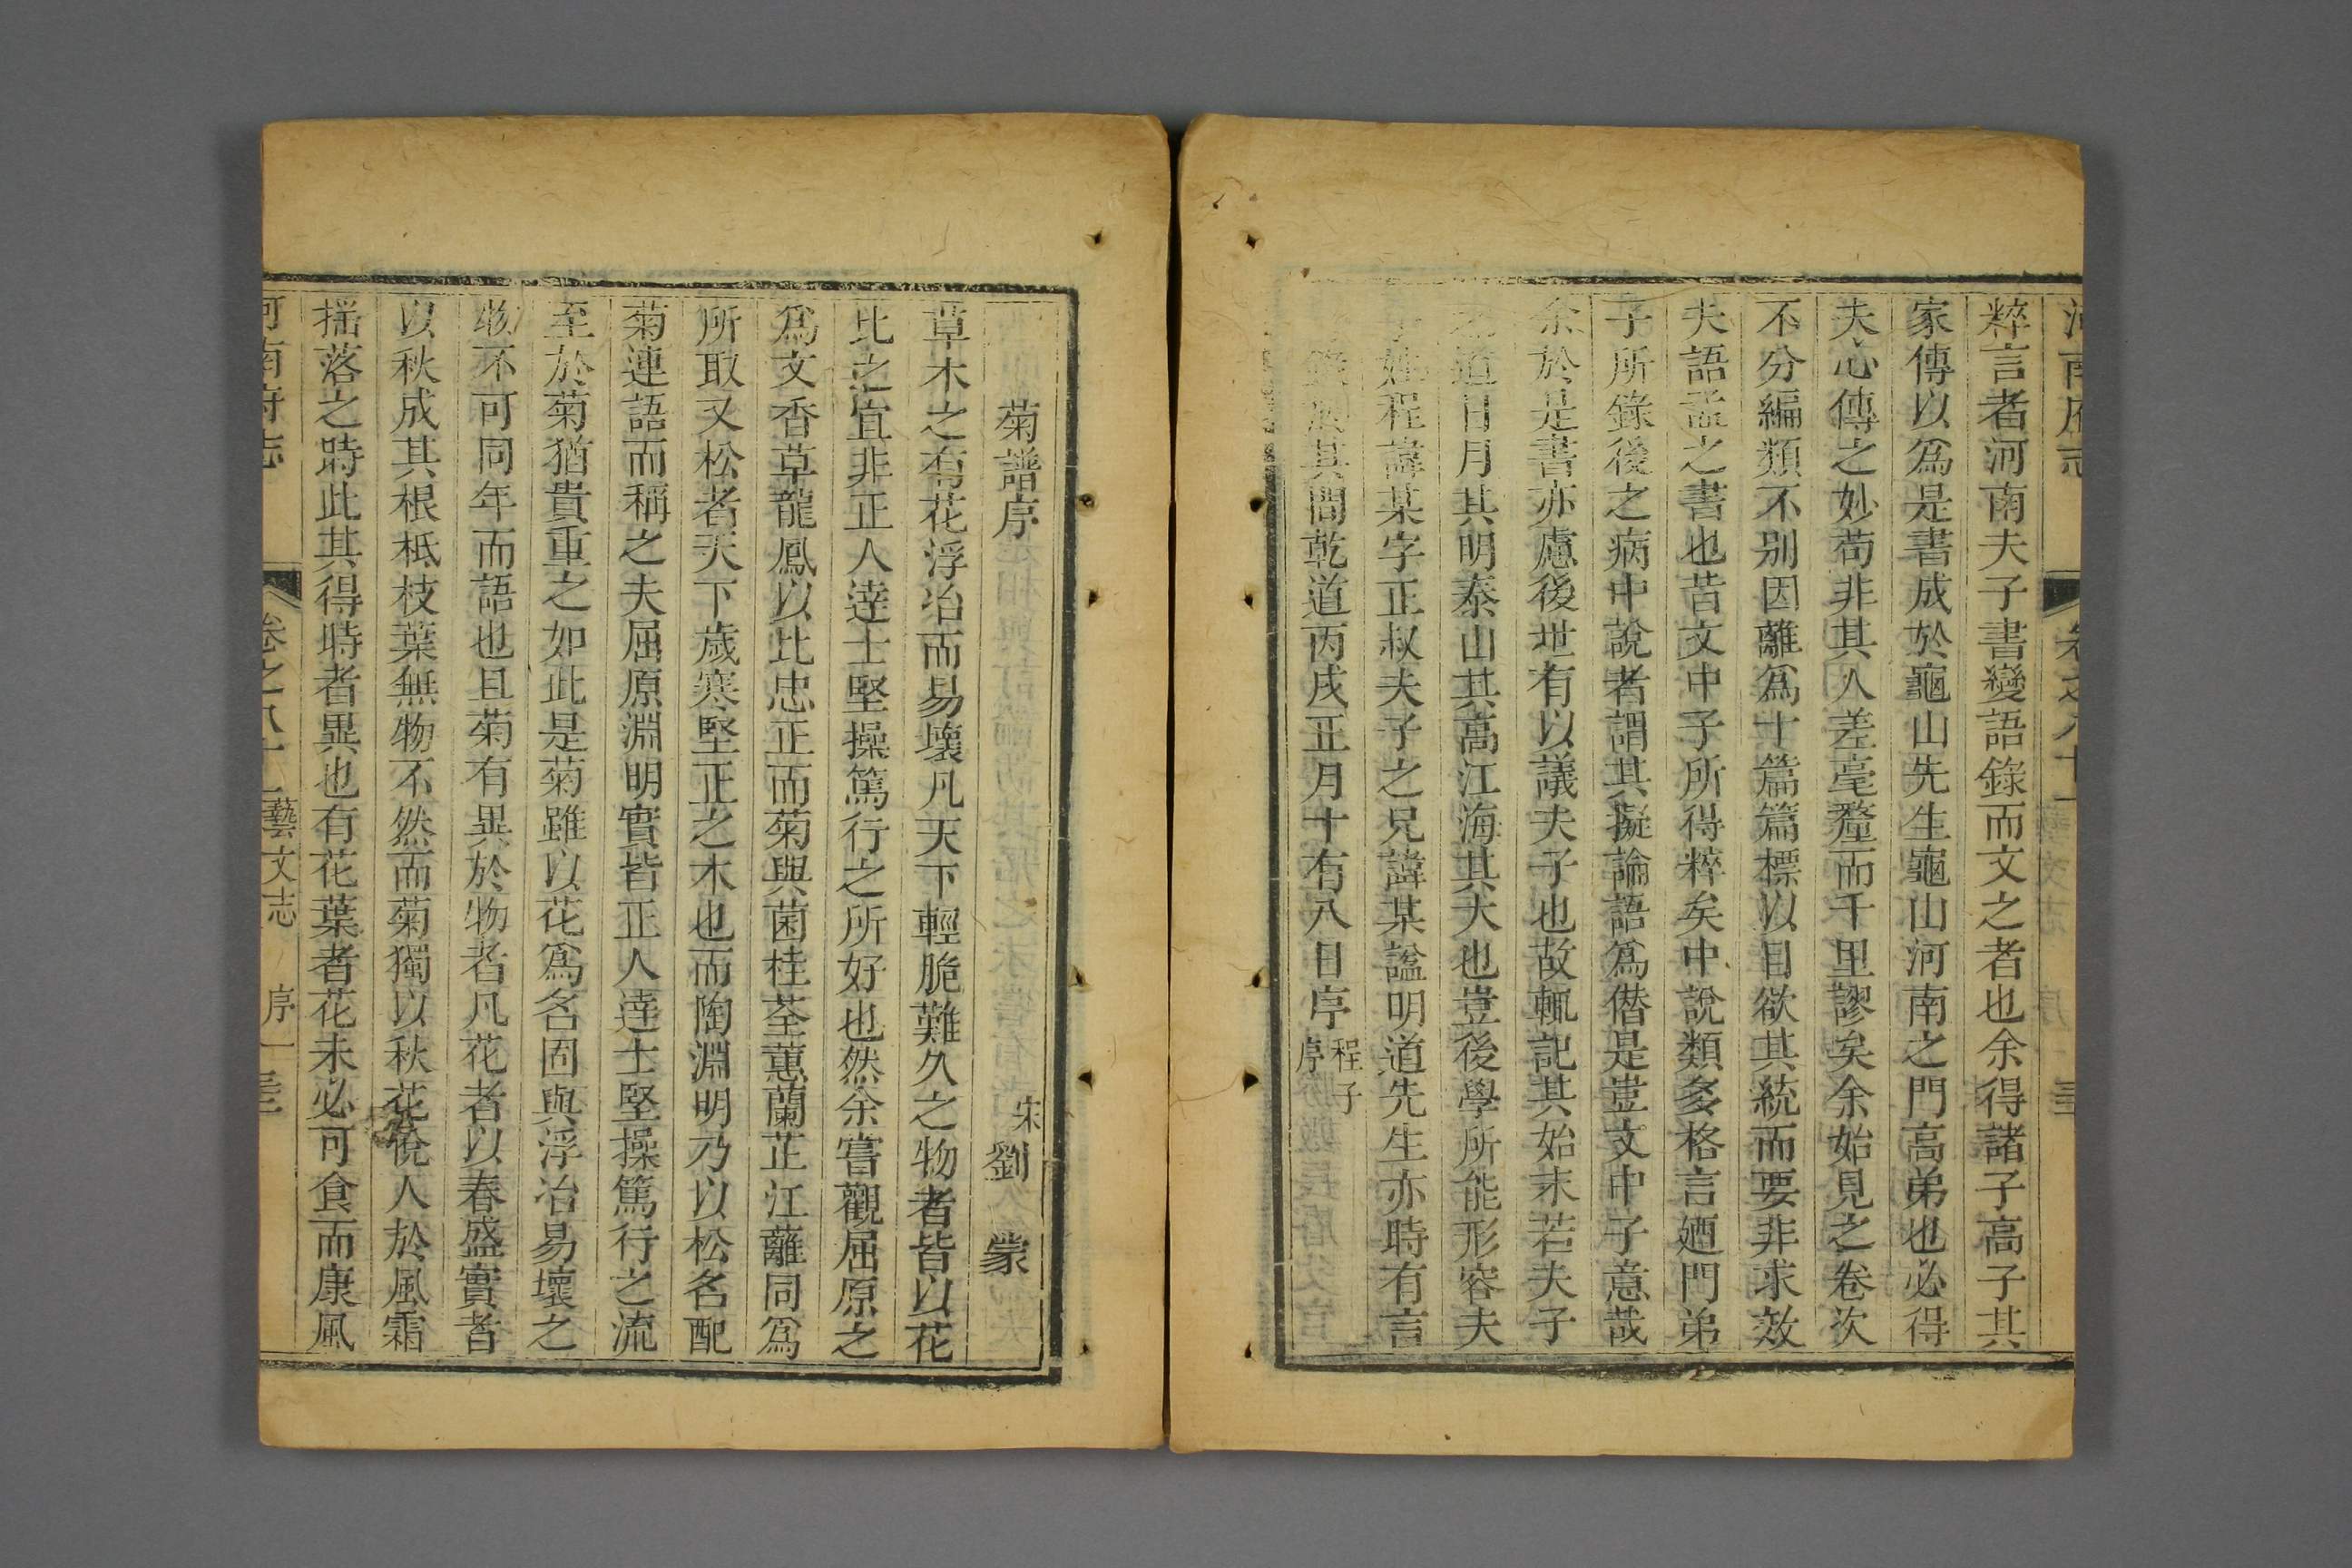 河南府志 卷之八十一 藝文志 序
粹言者河南夫子書變語錄而文之者也余得諸子高子其
家傳以爲是書成於龜山先生龜山河南之門高弟也必得
夫心傳之妙苟非其人差毫釐而千里謬矣余始見之卷次
不分編類不别因離爲十篇篇標以目欲其統而要非求效
夫語孟之書也昔文中子所得粹矣中說類多格言廼門弟
子所錄後之病中說者謂其擬論語爲僣是豈文中子意哉
余於是書亦慮後世有以議夫子也故輒記其始末若夫子
之道日月其明泰山其高江海其大也豈後學所能形容夫
子姓程諱某字正叔夫子之兄諱某諡明道先生亦時有言
其間乾道丙戌正月十有八日序 程子序
菊譜序 宋劉蒙
草木之有花浮冶而易壞凡天下輕脆難久之物者皆以花
比之宜非正人達士堅操篤行之所好也然余嘗觀屈原之
爲文香草龍鳳以比忠正而菊與菌桂荃蕙蘭芷江蘺同爲
所取又松者天下歲寒堅正之木也而陶淵明乃以松名配
菊連語而稱之夫屈原淵明實皆正人達士堅操篤行之流
至於菊猶貴重之如此是菊雖以花爲名固與浮冶易壞之
物不可同年而語也且菊有異於物者凡花者以春盛實者
以秋成其根柢枝葉無物不然而菊獨以秋花悅人於風霜
揺落之時此其得時者異也有花葉者花未必可食而康風
河南府志 卷之八十一 藝文志 序一